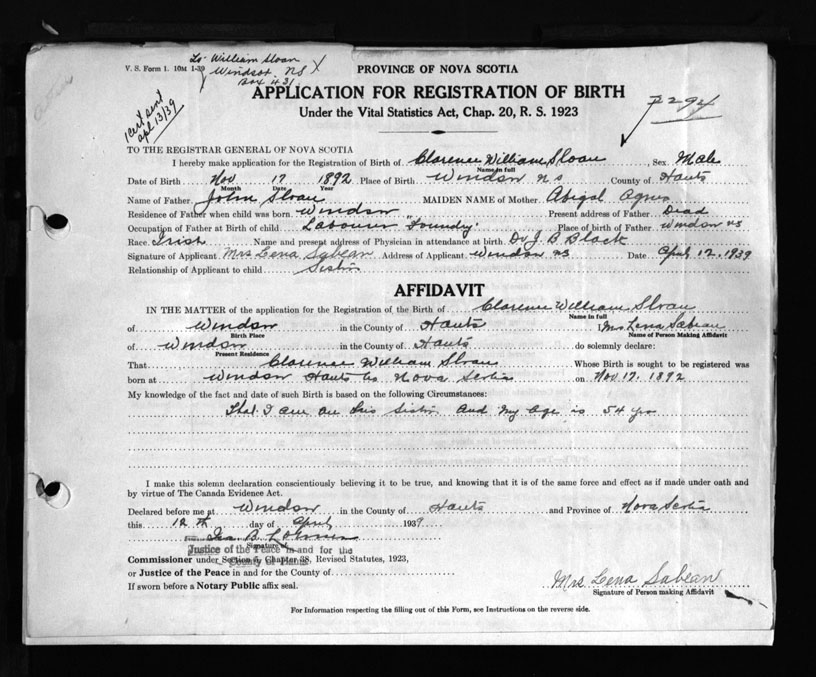 V. S. Form 1. 10M 1-39
To William Sloan
Windsor, NS
Box 431
Cert sent
Apl 13/39
PROVINCE OF NOVA SCOTIA
APPLICATION FOR REGISTRATION OF BIRTH
Under the Vital Statistics Act, Chap. 20, R. S. 1923
TO THE REGISTRAR GENERAL OF NOVA SCOTIA
I hereby make application for the Registration of Birth of Clarence William Sloan, Sex Male
Name in full
Date of Birth Nov 17 1892 Place of Birth Windsor N S County of Hants
Month Date Year
Name of Father John Sloan MAIDEN NAME of Mother Abigal Agnes
Residence of Father when child was born Windsor " Present address of Father Dead
Occupation of Father at Birth of child Labourer Foundry Place of birth of Father Windsor NS
Race Irish Name and present address of Physician in attendance at birth Dr J. B Black
Signature of Applicant Mrs Lena Sabean Address of Applicant Windsor NS Date April 12, 1939
Relationship of Applicant to child Sister
AFFIDAVIT
IN THE MATTER of the application for the Registration of the Birth of Clarence William Sloan
Name in full
of Windsor in the County of Hants I Mrs Lena Sabean
Birth Place Name of Person Making Affidavit
of Windsor in the County of Hants do solemnly declare:
Present Residence
That Clarence William Sloan Whose Birth is sought to be registered was
born at Windsor Hants Co Nova Scotia on Nov 17. 1892
My knowledge of the fact and date of such Birth is based on the following Circumstances:
That I am his Sister and my age is 54 yrs
I make this solemn declaration conscientiously believing it to be true, and knowing that it is of the same force and effect as if made under oath and
by virtue of The Canada Evidence Act.
Declared before me at Windsor in the County of Hants and Province of Nova Scotia
this 12th day of April 1939
Signature of
Justice of the Peace in and for the
County of Hants
Commissioner under Section 5, Chapter 38, Revised Statutes, 1923,
or Justice of the Peace in and for the County of
If sworn before a Notary Public affix seal.
Mrs Lena Sabean
Signature of Person making Affidavit
For Information respecting the filling out of this Form, see Instructions on the reverse side.